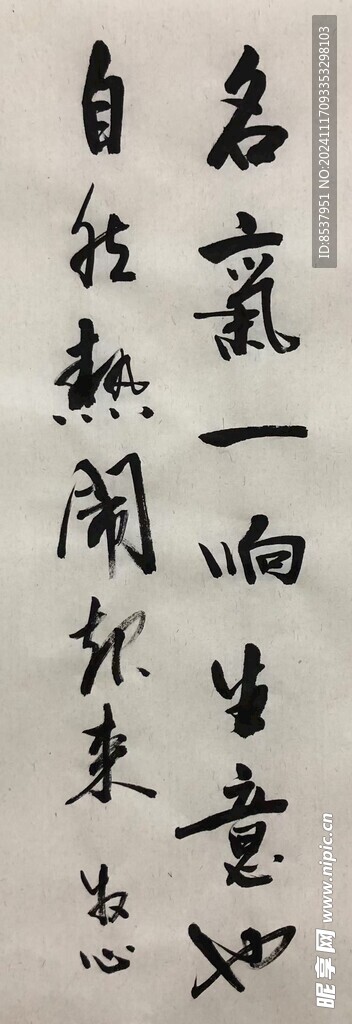 名氣一响生意也
自然熱鬧起來 牧心
ID:8537951 NO:20241117093353298103
昵享网 www.nipic.cn